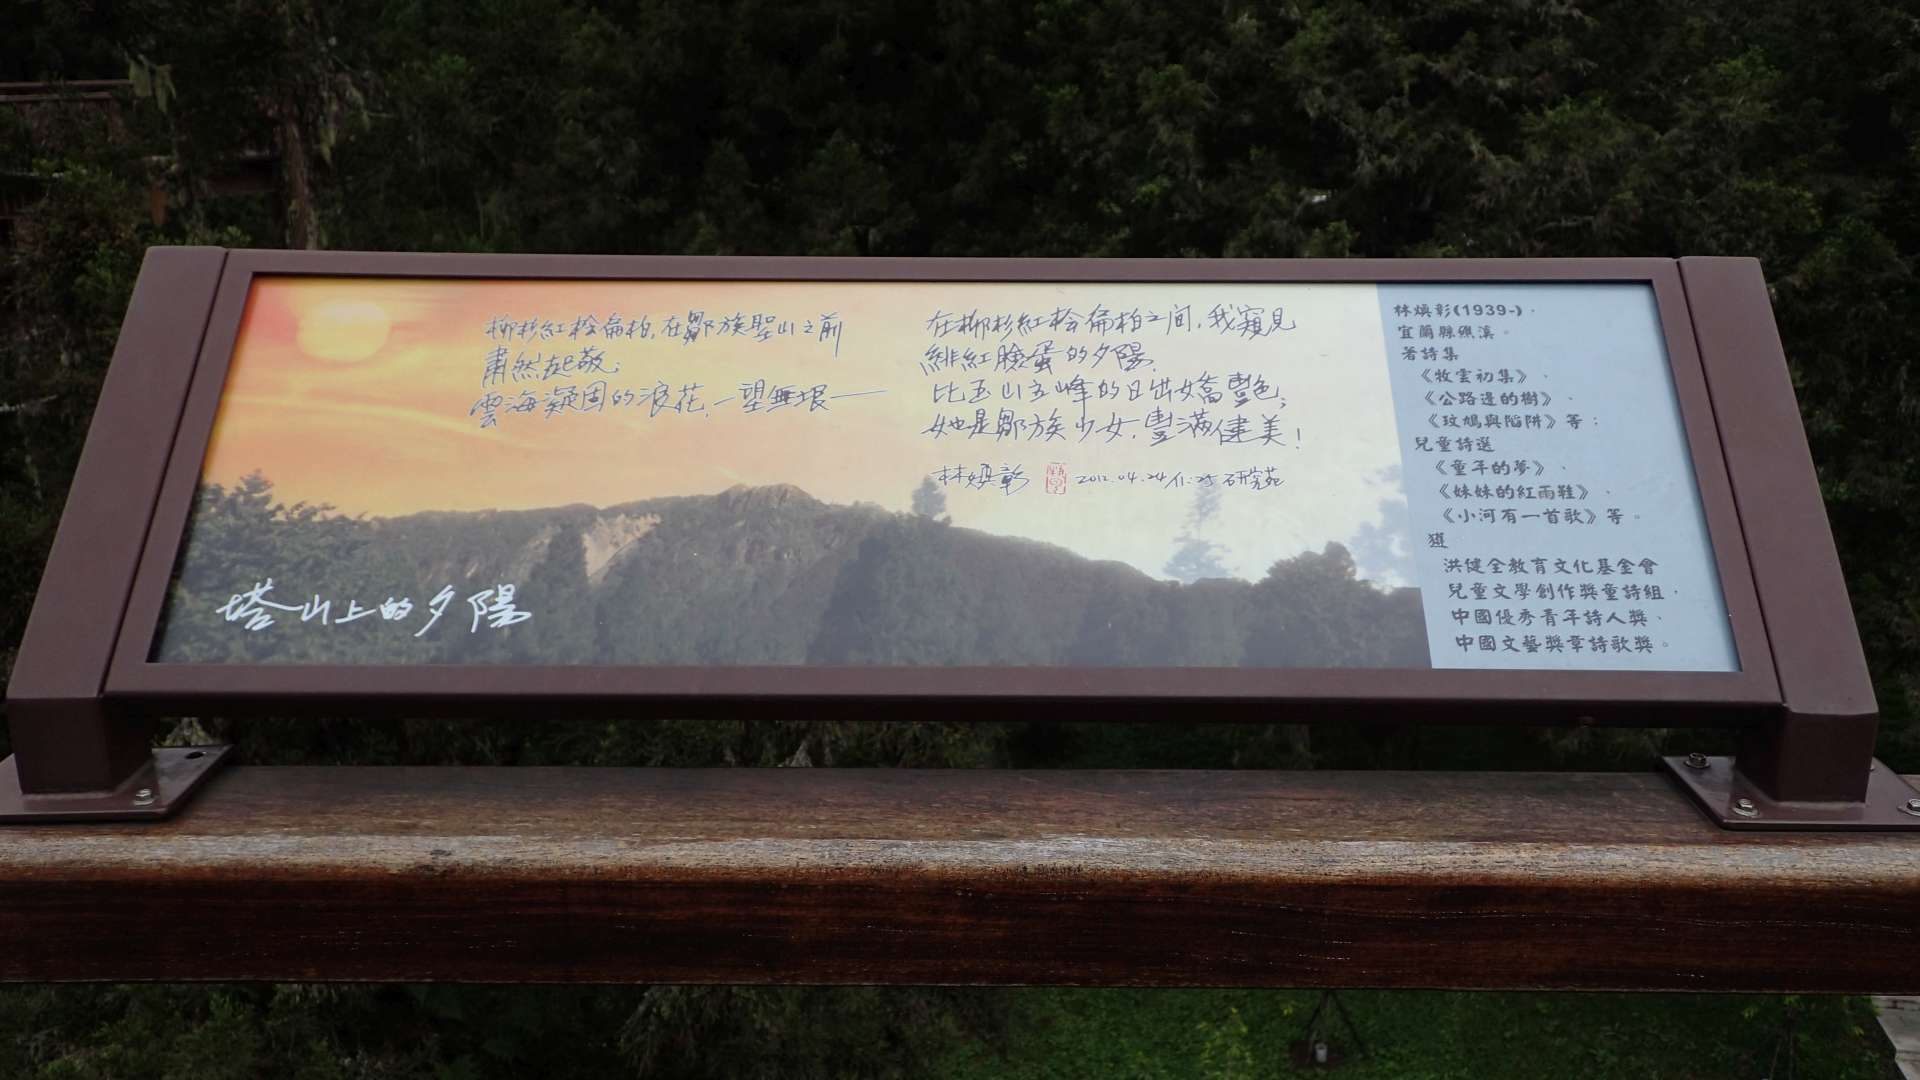 塔山上的夕陽
柳杉紅檜扁柏,在鄒族聖山之前
肅然起敬;
雲海凝固的浪花,一望無垠——
在柳杉紅檜扁柏之間,我窺見
緋紅臉蛋的夕陽,
比玉山五峰的日出嬌豔色;
她是鄒族少女,豐滿健美!
林煥彰 2012.04.24/11:25 研究苑
林煥彰(1939-),
宜蘭縣礁溪。
著詩集
《牧雲初集》、
《公路邊的樹》、
《玟鳩與陷阱》等;
兒童詩選
《童年的夢》、
《妹妹的紅雨鞋》、
《小河有一首歌》等。
獲
洪健全教育文化基金會
兒童文學創作獎童詩組,
中國優秀青年詩人獎、
中國文藝獎章詩歌獎。